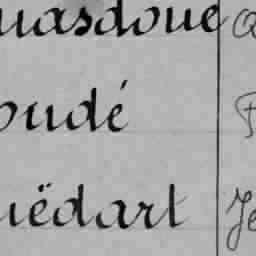 uasdoué
oudé
uëdart Je